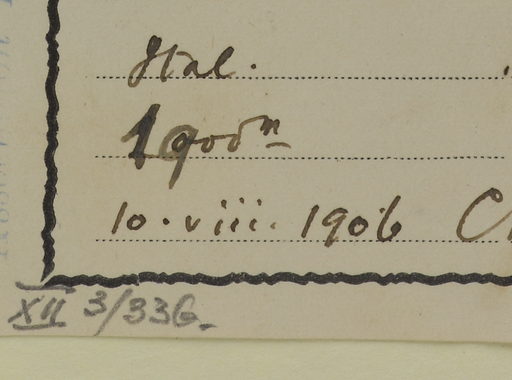 Ital.
1900m
10.viii.1906
XII 3/336.